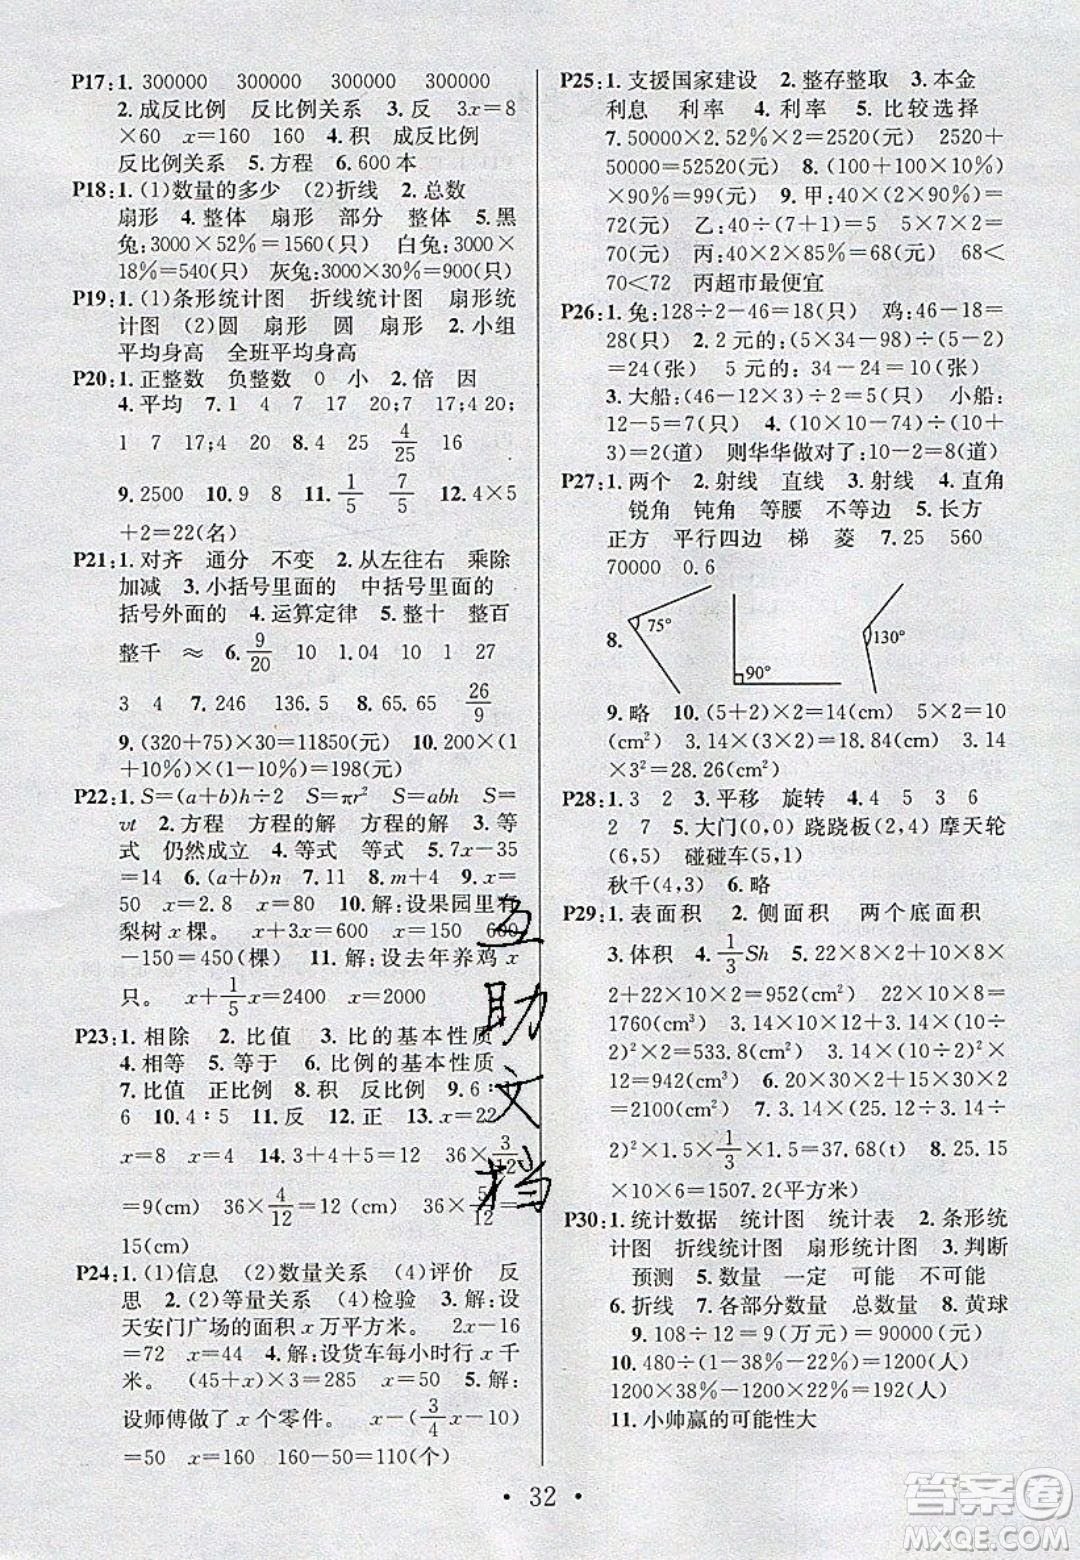 P17:1. 300000 300000 300000 300000
2. 成反比例 反比例关系 3. 反 3x=8
×60 x=160 160 4. 积 成反比例
反比例关系 5. 方程 6. 600本
P18:1. (1)数量的多少 (2)折线 2. 总数
扇形 4. 整体 扇形 部分 整体 5. 黑
兔:3000×52%=1560(只) 白兔:3000×
18%=540(只) 灰兔:3000×30%=900(只)
P19:1. (1)条形统计图 折线统计图 扇形统
计图 (2)圆 扇形 圆 扇形 2. 小组
平均身高 全班平均身高
P20:1. 正整数 负整数 0 小 2. 倍 因
4. 平均 7. 1 4 7 17 20;4 20;
1 7 17;4 20 8. 4 25 4/25 16
9. 2500 10. 9 11. 1/5 7/5 12. 4×5
+2=22(名)
P21:1. 对齐 通分 不变 2. 从左往右 乘除
加减 3. 小括号里面的 中括号里面的
括号外面的 4. 运算定律 5. 整十 整百
整千 ≈ 6. 9/20 10 1.04 10 1 27
3 4 7. 246 136.5 8. 65.65 26/9
9. (320+75)×30=11850(元) 10. 200×(1
+10%)×(1-10%)=198(元)
P22:1. S=(a+b)h÷2 S=πr² S=abh S=
vt 2. 方程 方程的解 方程的解 3. 等
式 仍然成立 4. 等式 等式 5. 7x-35
=14 6. (a+b)n 7. 11 8. m+4 9. x=
50 x=2.8 x=80 10. 解:设果园里有
梨树x棵。 x+3x=600 x=150 600
-150=450(棵) 11. 解:设去年养鸡x
只。 x+1/5x=2400 x=2000
P23:1. 相除 2. 比值 3. 比的基本性质
4. 相等 5. 等于 6. 比例的基本性质
7. 比值 正比例 8. 积 反比例 9. 6∶
6 10. 4∶5 11. 反 12. 正 13. x=22
x=8 x=4 14. 3+4+5=12 36×3/12
=9(cm) 36×4/12=12(cm) 36×5/12=
15(cm)
P24:1. (1)信息 (2)数量关系 (4)评价 反
思 2. (2)等量关系 (4)检验 3. 解:设
天安门广场的面积x万平方米。 2x-16
=72 x=44 4. 解:设货车每小时行x千
米。 (45+x)×3=285 x=50 5. 解:
设师傅做了x个零件。 x-(3/4x-10)
=50 x=160 160-50=110(个)
P25:1. 支援国家建设 2. 整存整取 3. 本金
利息 利率 4. 利率 5. 比较选择
7. 50000×2.52%×2=2520(元) 2520+
50000=52520(元) 8. (100+10)×(1-
×90%=99(元) 9. 甲:40×(2×90%)=
72(元) 乙:40÷(7+1)=5 5×7×2=
70(元) 丙:40×2×85%=68(元) 68<
70<72 丙超市最便宜
P26:1. 兔:128÷2-46=18(只) 鸡:46-18=
28(只) 2. 2元的:(5×34-98)÷(5-2)
=24(张) 5元的:34-24=10(张)
3. 大船:(46-12×3)÷2=5(只) 小船:
12-5=7(只) 4. (10×10-74)÷(10+
3)=2(道) 则华华做对了:10-2=8(道)
P27:1. 两个 2. 射线 直线 3. 射线 4. 直角
锐角 钝角 等腰 不等边 5. 长方
正方 平行四边 梯 菱 7. 25 560
70000 0.6
8. 75° 90° 130°
9. 略 10. (5+2)×2=14(cm) 5×2=10
(cm²) 3.14×(3×2)=18.84(cm) 3.14
×3²=28.26(cm²)
P28:1. 3 2 3. 平移 旋转 4. 4 5 3 6
2 7 5. 大门(0,0) 跷跷板(2,4) 摩天轮
(6,5) 碰碰车(5,1)
秋千(4,3) 6. 略
P29:1. 表面积 2. 侧面积 两个底面积
3. 体积 4. 1/3Sh 5. 22×8×2+10×8×
2+22×10×2=952(cm²) 22×10×8=
1760(cm³) 3.14×10×12+3.14×(10÷
2)²×2=533.8(cm²) 3.14×(10÷2)²
×12=942(cm³) 6. 15×20×14÷2
=2100(cm²) 7. 3.14×(2×3.14÷3.14÷
2)²×1.5×1/3×1.5=36.768(t) 8. 50×
×10×6=1507.2(平方米)
P30:1. 统计数据 统计图 统计表 2. 条形统
计图 折线统计图 扇形统计图 3. 判断
预测 5. 数量 一定 可能 不可能
6. 折线 7. 各部分数量 总数量 8. 黄球
9. 108÷12=9(万元)=90000(元)
10. 480÷(1-38%-22%)=1200(人)
1200×(38%-22%)=192(人)
11. 小帅赢的可能性大
互
助
文
档
· 32 ·
答案圈
MXQE.COM